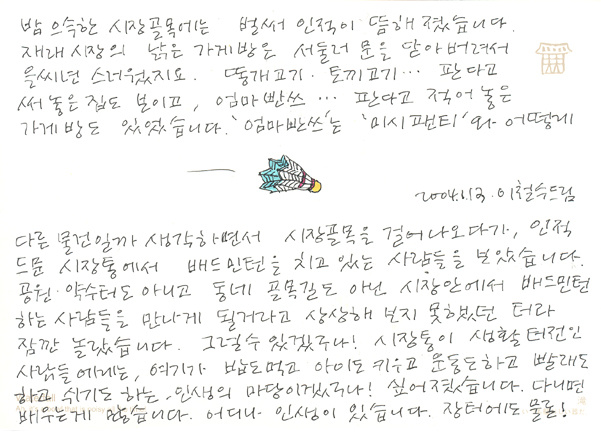 밤 으슥한 시장골목에는 벌써 인적이 뜸해 졌습니다.
재래시장의 낡은 가게방은 서둘러 문을 닫아버려서
을씨년 스러웠지요. 똥개고기·토끼고기… 판다고
써 놓은 집도 보이고, 엄마빤쓰… 판다고 적어 놓은
가게방도 있었습니다. '엄마빤쓰'는 '미시팬티'와 어떻게
2004.1.13. 이철수드림
다른 물건일까 생각하면서 시장골목을 걸어나오다가, 인적
드문 시장통에서 배드민턴을 치고 있는 사람들을 보았습니다.
공원·약수터도 아니고 동네 골목길도 아닌 시장안에서 배드민턴
하는 사람들을 만나게 될거라고 상상해 보지 못했던 터라
잠깐 놀랐습니다. 그럴수 있겠구나! 시장통이 생활터전인
사람들에게는, 여기가 밥도먹고 아이도 키우고 운동도하고 빨래도
하고 쉬기도 하는 인생의 마당이겠구나! 싶어졌습니다. 다니면
배우는게 많습니다. 어디나 인생이 있습니다. 장터에도 물론!